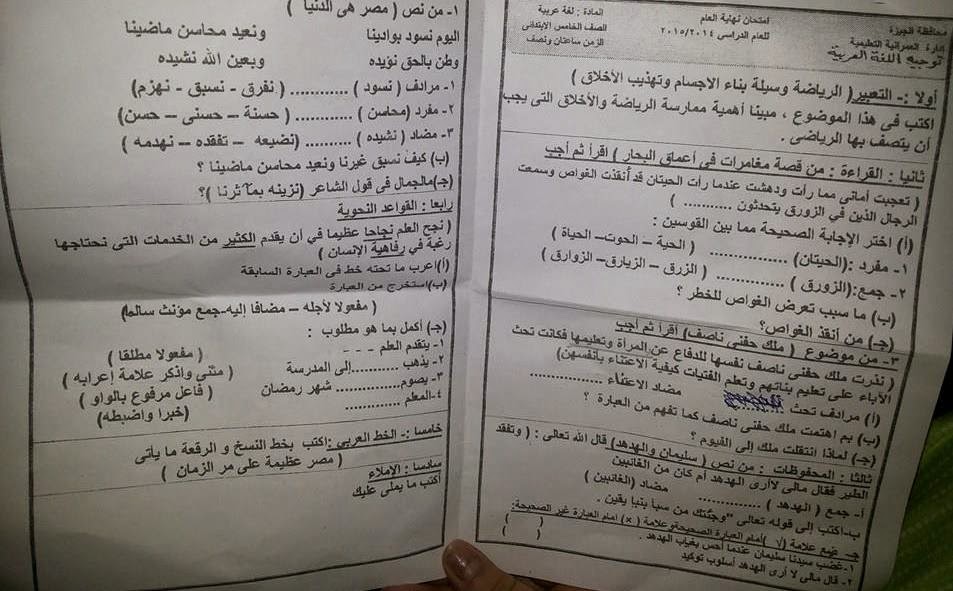 محافظة الجيزة
إدارة العمرانية التعليمية
توجيه اللغة العربية
امتحان نهاية العام
للعام الدراسى ٢٠١٥/٢٠١٤
المادة : لغة عربية
الصف الخامس الابتدائى
الزمن ساعتان ونصف
أولا :- التعبير ( الرياضة وسيلة بناء الاجسام وتهذيب الأخلاق )
اكتب فى هذا الموضوع ، مبينا أهمية ممارسة الرياضة والأخلاق التى يجب
أن يتصف بها الرياضى .
ثانيا : القراءة : من قصة مغامرات فى أعماق البحار ) اقرأ ثم أجب
( تعجبت أمانى مما رأت ودهشت عندما رأت الحيتان قد أنقذت الغواص وسمعت
الرجال الذين في الزورق يتحدثون ............ )
(أ) اختر الإجابة الصحيحة مما بين القوسين :
١- مفرد :(الحيتان) ................ (الحية – الحوت– الحياة )
٢- جمع:(الزورق) .................. ( الزرق – الزيارق– الزوارق )
(ب) ما سبب تعرض الغواص للخطر ؟
(جـ) من أنقذ الغواص؟
٣- من موضوع ( ملك حفنى ناصف) اقرأ ثم أجب
( نذرت ملك حفنى ناصف نفسها للدفاع عن المرأة وتعليمها فكانت تحث
الآباء على تعليم بناتهم وتعلم الفتيات كيفية الاعتناء بأنفسهن)
(أ) مرادف تحث مضاد الاعتناء ................
(ب) بم اهتمت ملك حفنى ناصف كما تفهم من العبارة ؟
(جـ) لماذا انتقلت ملك إلى الفيوم ؟
ثالثا : المحفوظات : من نص ( سليمان والهدهد) قال الله تعالى : ( وتفقد
الطير فقال مالى لاأرى الهدهد أم كان من الغائبين
أ- جمع ( الهدهد ) ............ مضاد (الغائبين )
ب-اكتب إلى قوله تعالى "وجئتك من سبأ بنبأ يقين .
جـ- ضع علامة (√ )أمام العبارة الصحيحةوعلامة ( × ) أمام العبارة غير الصحيحة:
١-غضب سيدنا سليمان عندما أحس بغياب الهدهد . ( )
٢- قال مالى لا أرى الهدهد أسلوب توكيد ( )
١- من نص ( مصر هى الدنيا )
اليوم نسود بوادينا ونعيد محاسن ماضينا
وطن بالحق نؤيده وبعين الله نشيده
١- مرادف ( نسود ) ............ ( نفرق - نسبق - نهزم)
٢- مفرد (محاسن ) ............ ( حسنة – حسنى – حسن)
٣- مضاد ( نشيده ) .......... ( نضيعه – تفقده – نهدمه )
(ب) كيف نسبق غيرنا ونعيد محاسن ماضينا ؟
(جـ)مالجمال فى قول الشاعر (نزينه بمآثرنا )؟
رابعا : القواعد النحوية
( نجح العلم نجاحا عظيما في أن يقدم الكثير من الخدمات التى نحتاجها
رغبة في رفاهية الإنسان )
(أ)اعرب ما تحته خط فى العبارة السابقة
(ب)استخرج من العبارة
( مفعولا لأجله – مضافا إليه-جمع مؤنث سالما)
(جـ) أكمل بما هو مطلوب :
١- يتقدم العلم - - - ( مفعولا مطلقا )
٢- يذهب ...........إلى المدرسة ( مثنى واذكر علامة إعرابه )
٣-يصوم............ شهر رمضان ( فاعل مرفوع بالواو )
٤-المعلم ............. (خبرا واضبطه)
خامسا :- الخط العربى :اكتب بخط النسخ و الرقعة ما يأتى
( مصر عظيمة على مر الزمان )
سادسا : الإملاء
اكتب ما يملى عليك